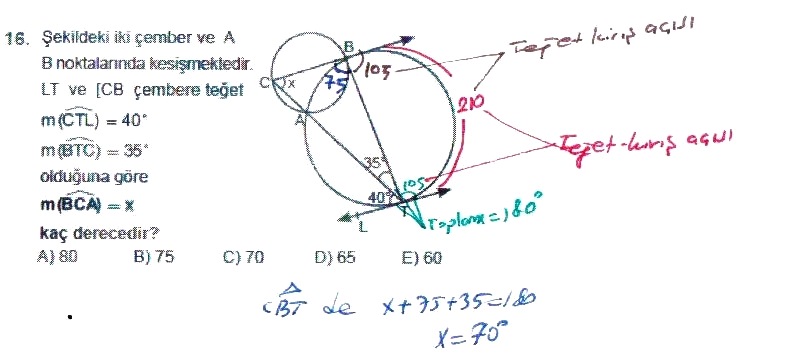 16. Şekildeki iki çember ve A
B noktalarında kesişmektedir.
LT ve [CB çembere teğet
m(CTL) = 40°
m(BTC) = 35°
olduğuna göre
m(BCA) = x
kaç derecedir?
A) 80 B) 75 C) 70 D) 65 E) 60
B
C
x
75
105
A
35°
40°
105
T
L
210
Teğet-kiriş açısı
Teğet-kiriş açısı
Toplamı=180°
CBT de x+75+35=180
x=70°